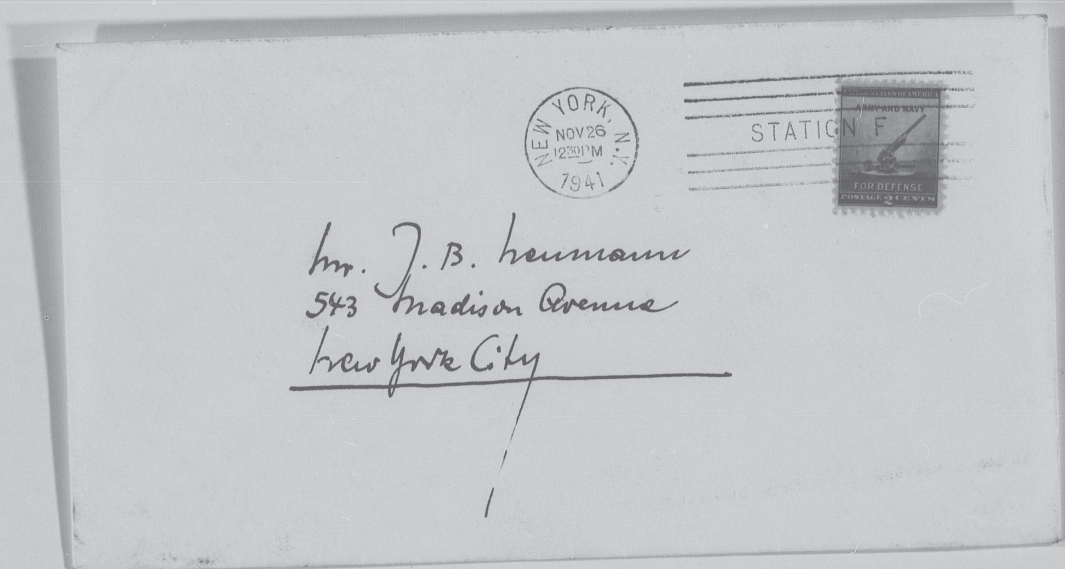 NEW YORK, N.Y.
NOV 26
12 30 PM
1941
STATION F
UNITED STATES OF AMERICA
ARMY AND NAVY
FOR DEFENSE
POSTAGE 2 CENTS
Mr. J. B. Neumann
543 Madison Avenue
New York City